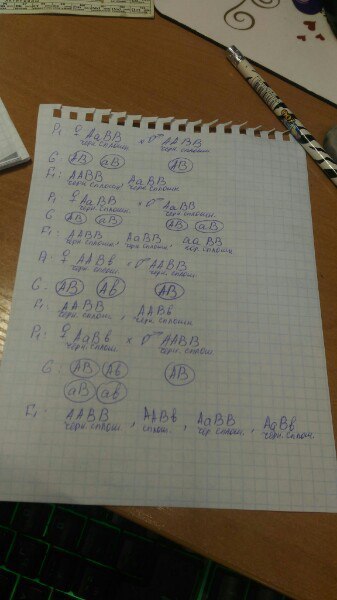 P₁ ♀ AaBB × ♂ AABB
черн. сплош. черн. сплошн.
G AB aB AB
F₁: AABB, AaBB
черн. сплошн. черн. сплошн.
P₁ ♀ AaBB × ♂ AaBB
черн. сплошн. черн. сплош.
G AB aB AB aB
F₁: AABB, AaBB, aaBB
черн. сплошн. черн. сплошн. сплошн
P₁ ♀ AABв × ♂ AABB
черн. сплош. черн. сплош.
G: AB Aв AB
F₁: AABB, AABв
черн. сплош. черн. сплошн
P₁: ♀ AaBв × ♂ AABB
черн. сплош. черн. сплош.
G: AB Aв AB
aB aв
F₁: AABB, AABв, AaBB, AaBв
черн. сплош. сплош. чер. сплош. черн. сплош.